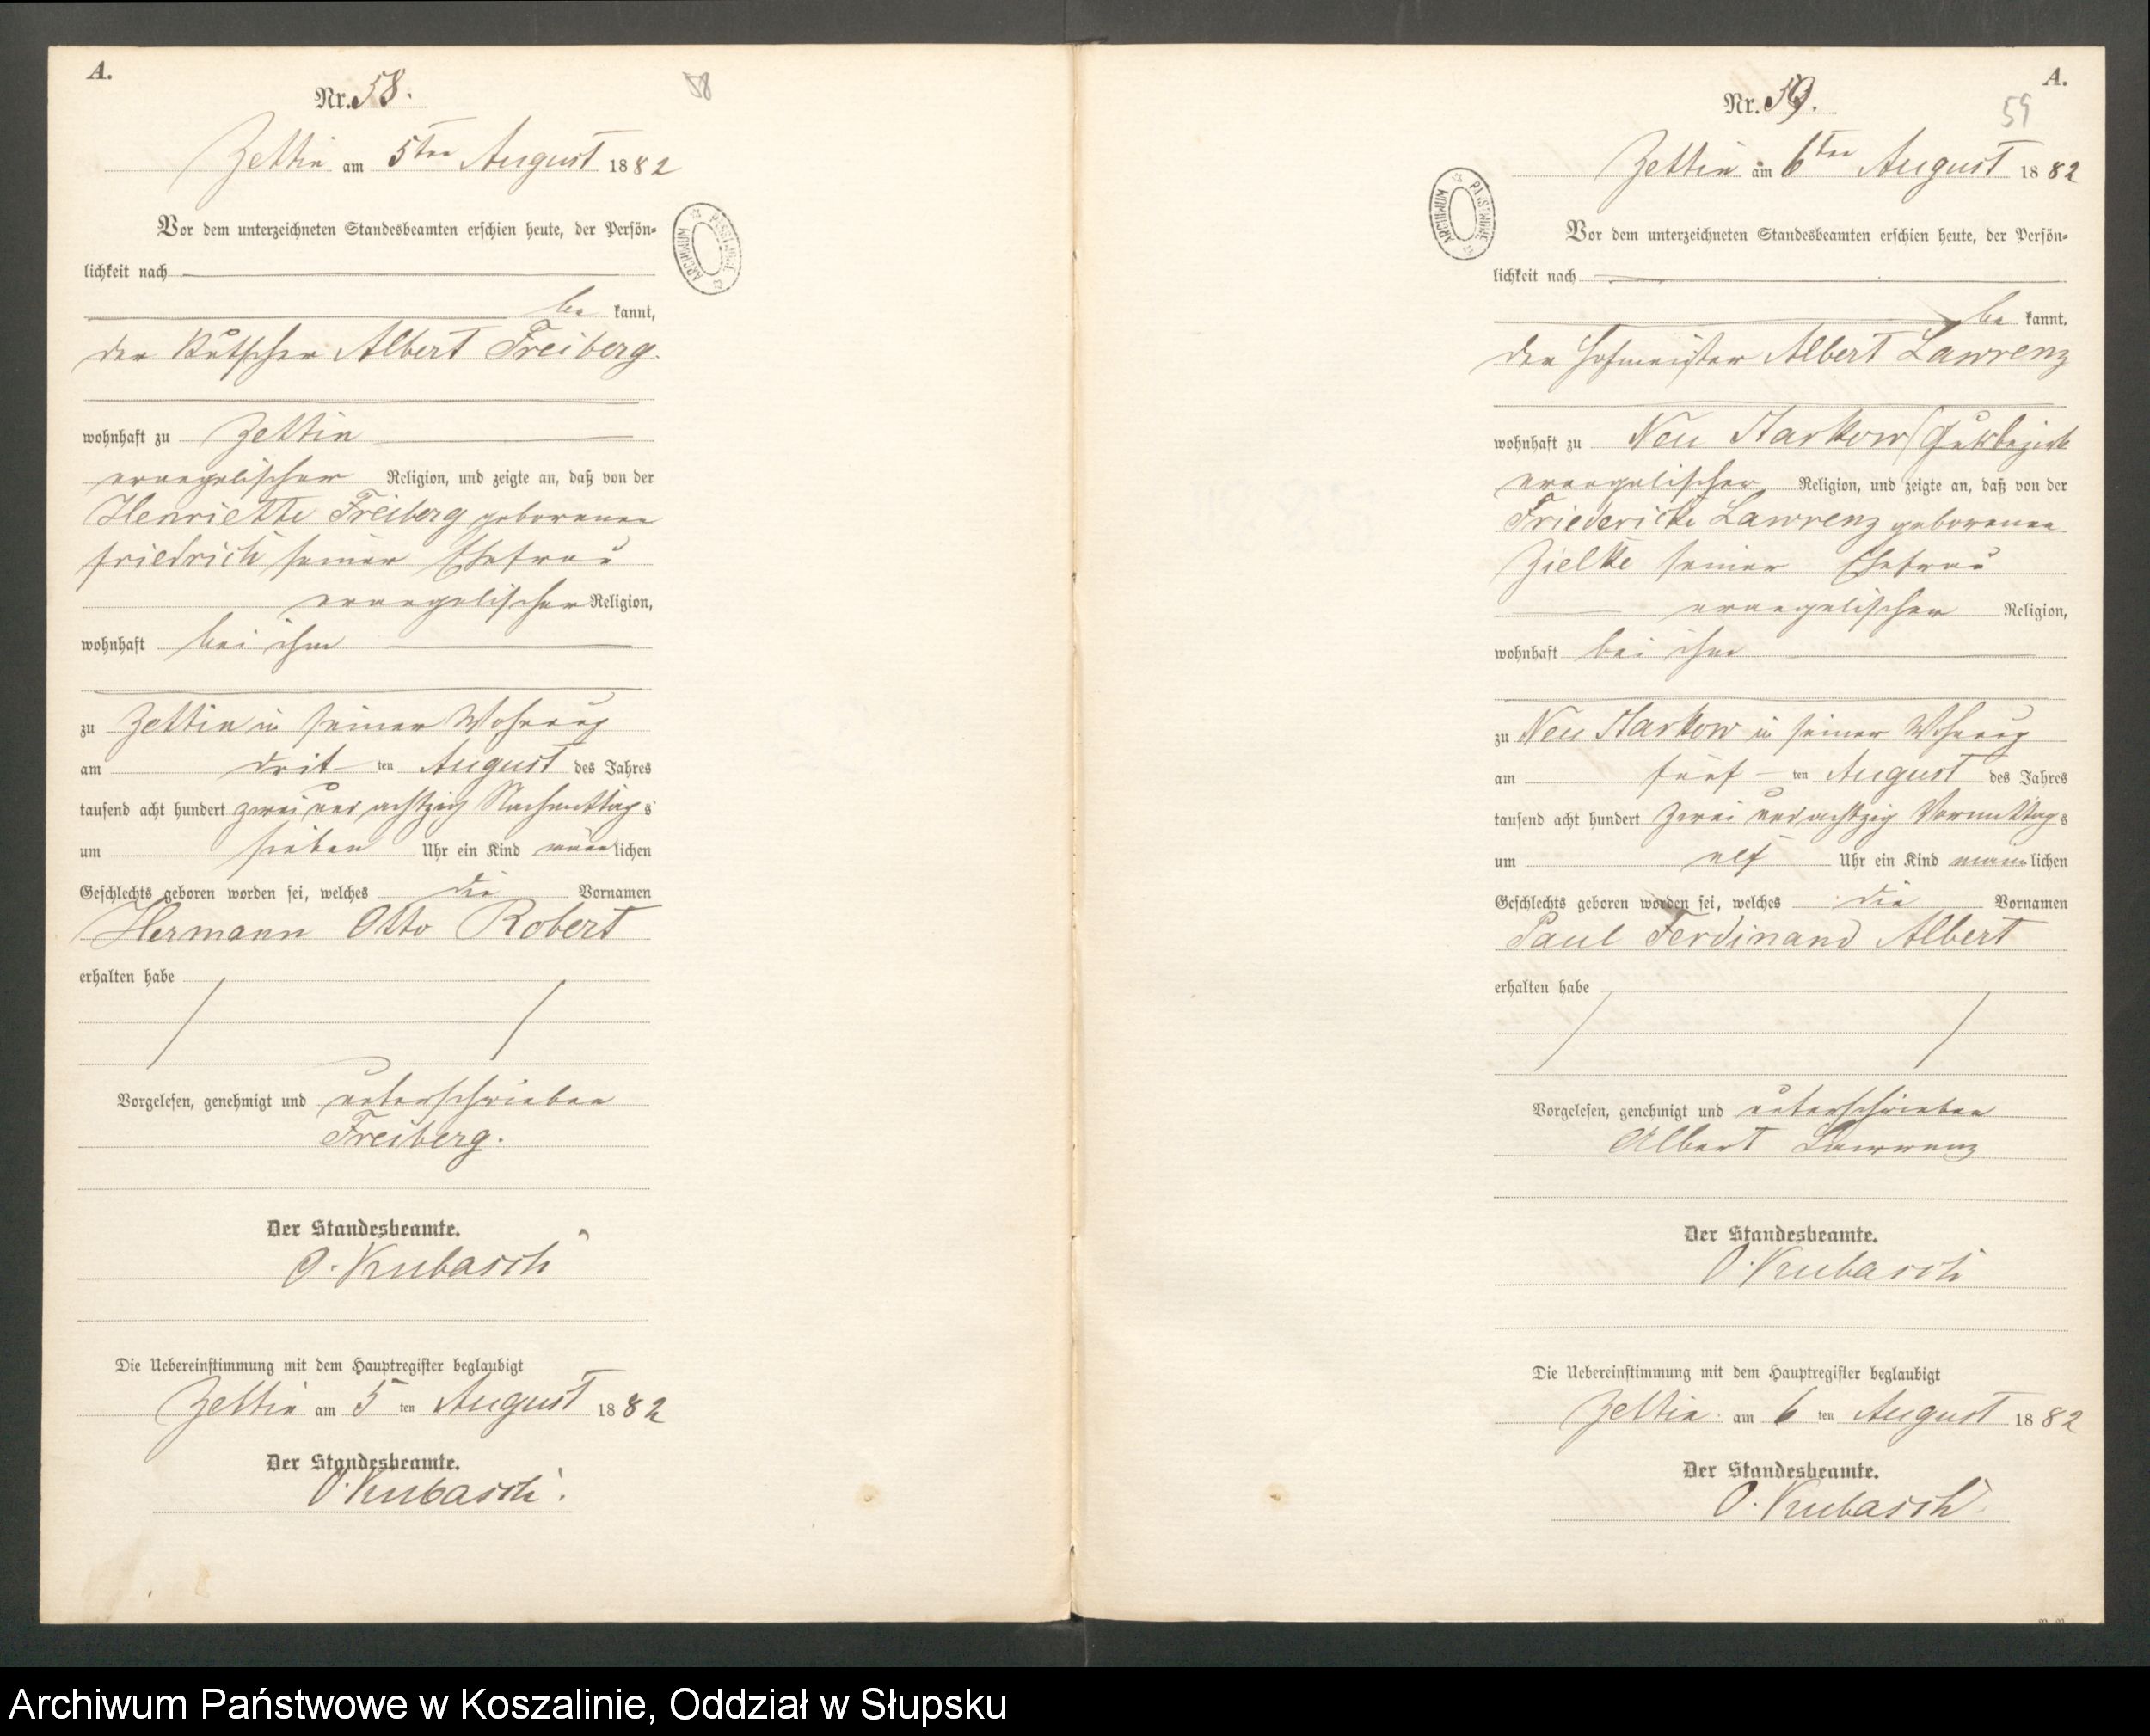 A.
Nr. 58.
58
Zettin am 5ten August 1882
Vor dem unterzeichneten Standesbeamten erschien heute, der Persön-
lichkeit nach
be kannt,
der Kutscher Albert Freiberg.
wohnhaft zu Zettin
evangelischer Religion, und zeigte an, daß von der
Henriette Freiberg geborenen
Friedrich seiner Ehefrau
evangelischer Religion,
wohnhaft bei ihm
zu Zettin in seiner Wohnung
am drit ten August des Jahres
tausend acht hundert zwei und achtzig Nachmittags
um sieben Uhr ein Kind männlichen
Geschlechts geboren worden sei, welches die Vornamen
Hermann Otto Robert
erhalten habe
Vorgelesen, genehmigt und unterschrieben
Freiberg.
Der Standesbeamte.
O. Kubasch
Die Uebereinstimmung mit dem Hauptregister beglaubigt
Zettin am 5 ten August 1882
Der Standesbeamte.
O. Kubasch.
ARCHIWUM PAŃSTWOWE
A.
Nr. 59.
59
Zettin am 6ten August 1882
ARCHIWUM PAŃSTWOWE
Vor dem unterzeichneten Standesbeamten erschien heute, der Persön-
lichkeit nach
be kannt,
der Hofmeister Albert Lawrenz
wohnhaft zu Neu Starkow (Gutsbezirk
evangelischer Religion, und zeigte an, daß von der
Friedericke Lawrenz geborenen
Zielke seiner Ehefrau
evangelischer Religion,
wohnhaft bei ihm
zu Neu Starkow in seiner Wohnung
am fünf ten August des Jahres
tausend acht hundert zwei und achtzig Vormittags
um elf Uhr ein Kind männlichen
Geschlechts geboren worden sei, welches die Vornamen
Paul Ferdinand Albert
erhalten habe
Vorgelesen, genehmigt und unterschrieben
Albert Lawrenz
Der Standesbeamte.
O. Kubasch
Die Uebereinstimmung mit dem Hauptregister beglaubigt
Zettin am 6 ten August 1882
Der Standesbeamte.
O. Kubasch
Archiwum Państwowe w Koszalinie, Oddział w Słupsku